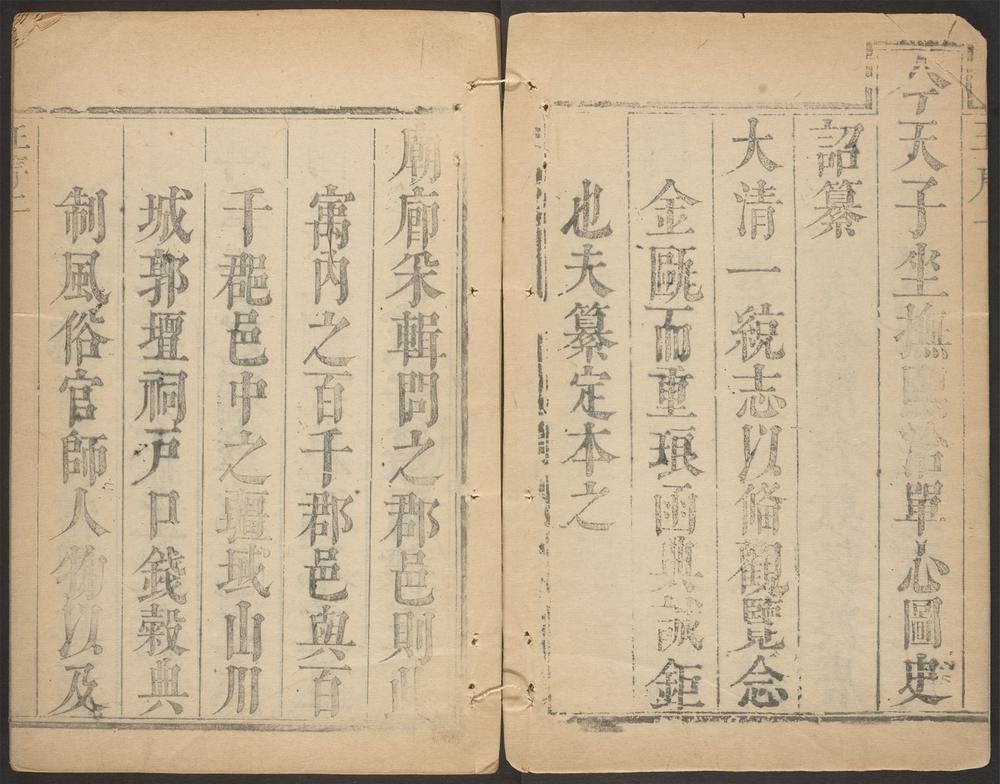 今天子坐撫熙洽單心圖史
詔纂
大清一統志以備觀覽念
金甌而重琅函典誠鉅
也夫纂定本之
廟廊采輯問之郡邑則
寓内之百千郡邑與百
千郡邑中之疆域山川
城郭壇祠戸口錢穀典
制風俗官師人物以及